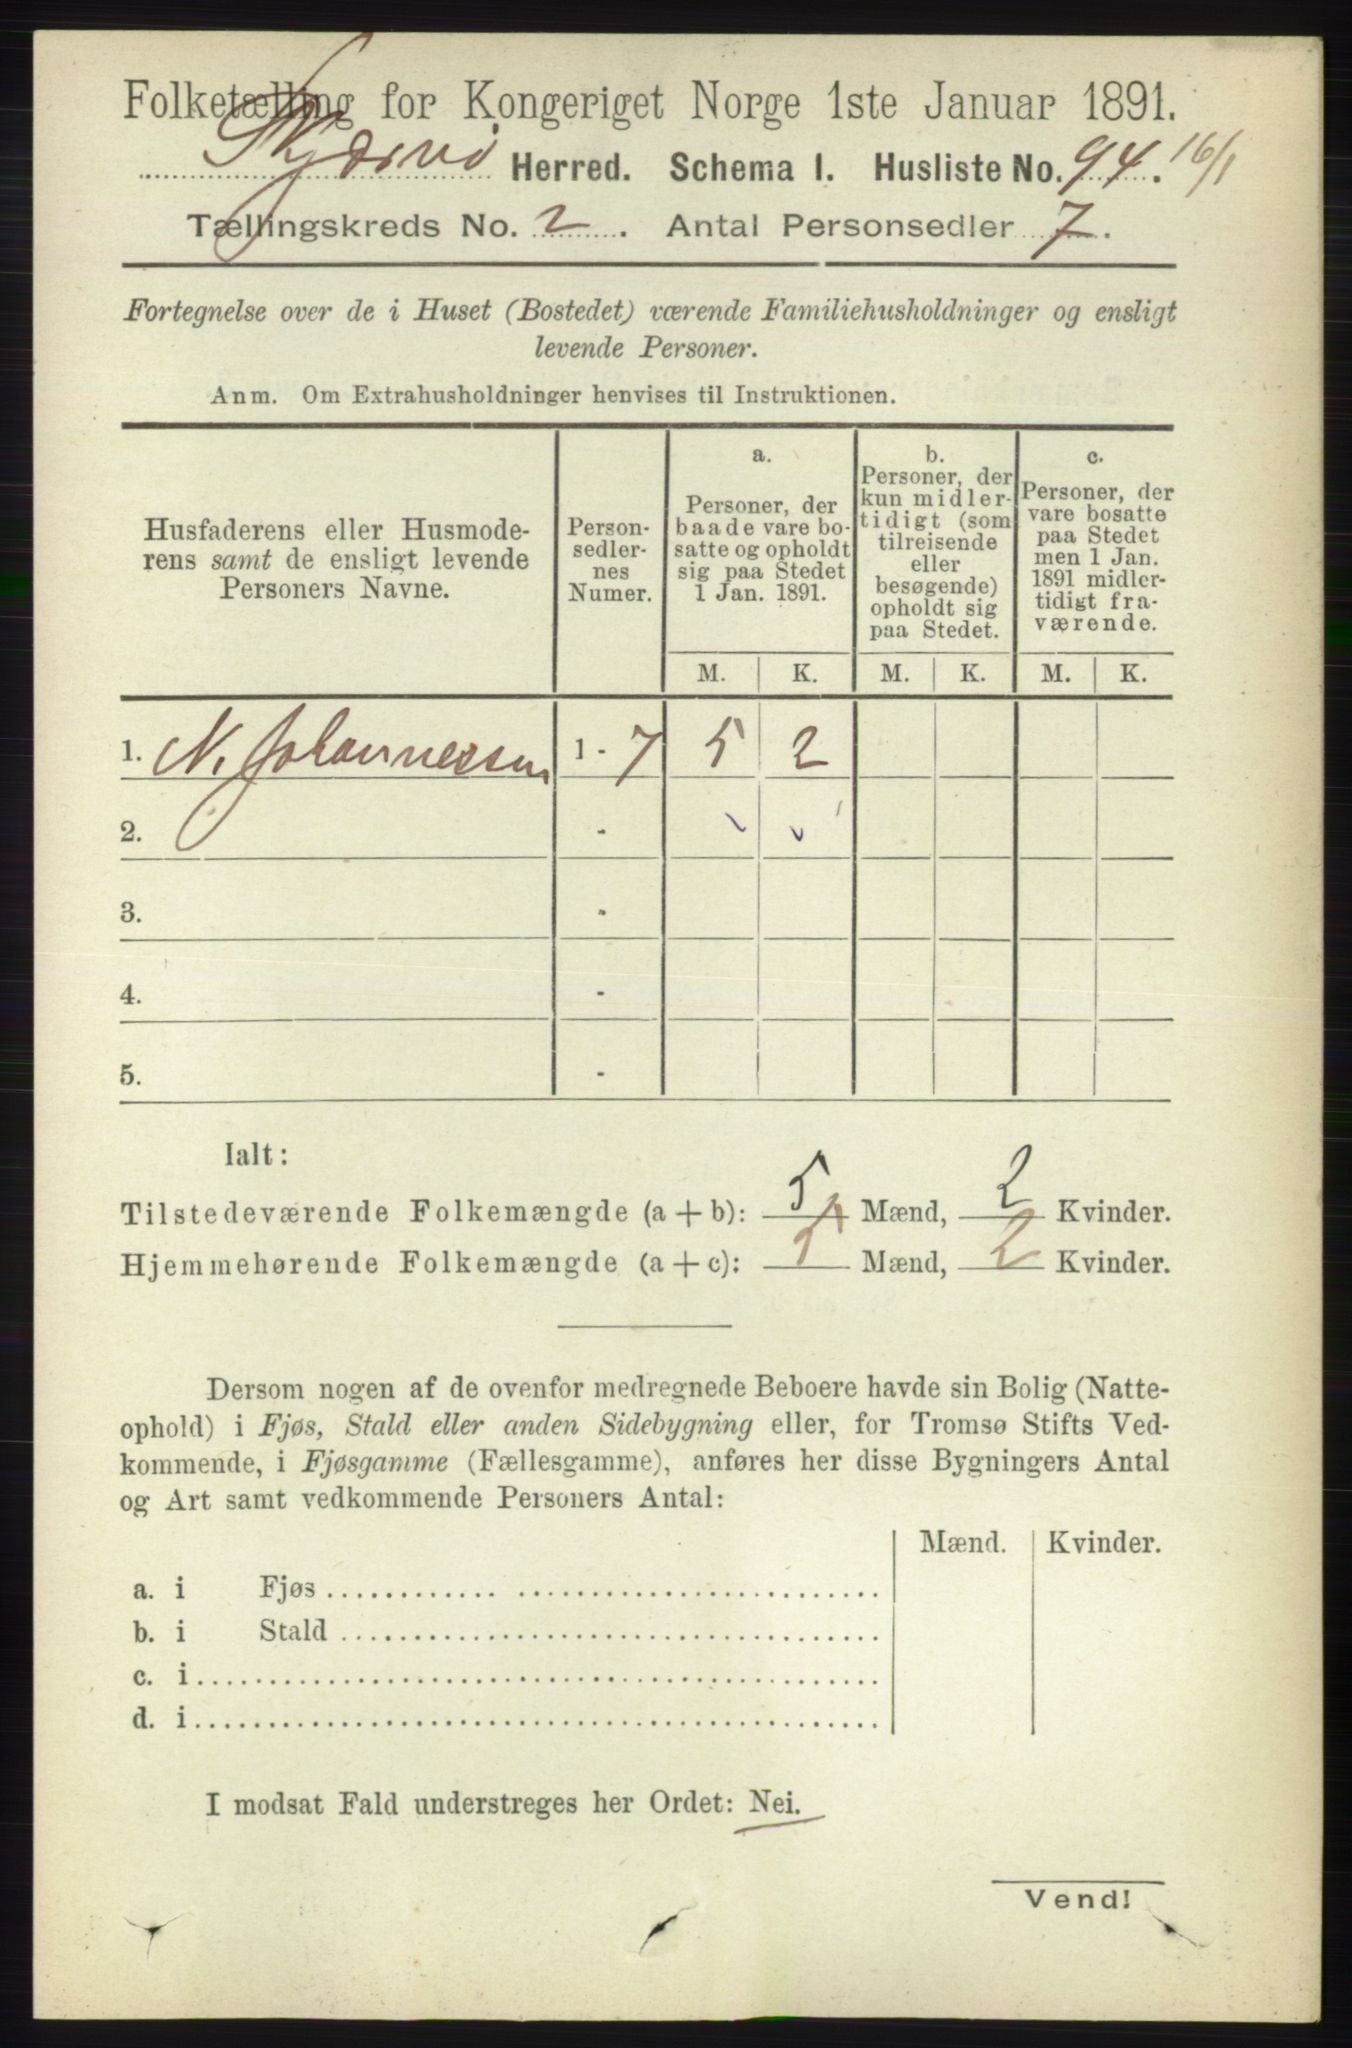 Folketælling for Kongeriget Norge 1ste Januar 1891.
Skjærvø Herred. Schema I. Husliste No. 94. 16/1
Tællingskreds No. 2. Antal Personsedler 7.
Fortegnelse over de i Huset (Bostedet) værende Familiehusholdninger og ensligt
levende Personer.
Anm. Om Extrahusholdninger henvises til Instruktionen.
Husfaderens eller Husmode-
rens samt de ensligt levende
Personers Navne.
Person-
sedler-
nes
Numer.
a.
Personer, der
baade vare bo-
satte og opholdt
sig paa Stedet
1 Jan. 1891.
b.
Personer, der
kun midler-
tidigt (som
tilreisende
eller
besøgende)
opholdt sig
paa Stedet.
c.
Personer, der
vare bosatte
paa Stedet
men 1 Jan.
1891 midler-
tidigt fra-
værende.
M. K. M. K. M. K.
1. N. Johannessen 1 - 7 5 2
2. -
3. -
4. -
5. -
Ialt:
Tilstedeværende Folkemængde (a + b): 5 Mænd, 2 Kvinder.
Hjemmehørende Folkemængde (a + c): 5 Mænd, 2 Kvinder.
Dersom nogen af de ovenfor medregnede Beboere havde sin Bolig (Natte-
ophold) i Fjøs, Stald eller anden Sidebygning eller, for Tromsø Stifts Ved-
kommende, i Fjøsgamme (Fællesgamme), anføres her disse Bygningers Antal
og Art samt vedkommende Personers Antal:
Mænd. Kvinder.
a. i Fjøs
b. i Stald
c. i
d. i
I modsat Fald understreges her Ordet: Nei.
Vend!